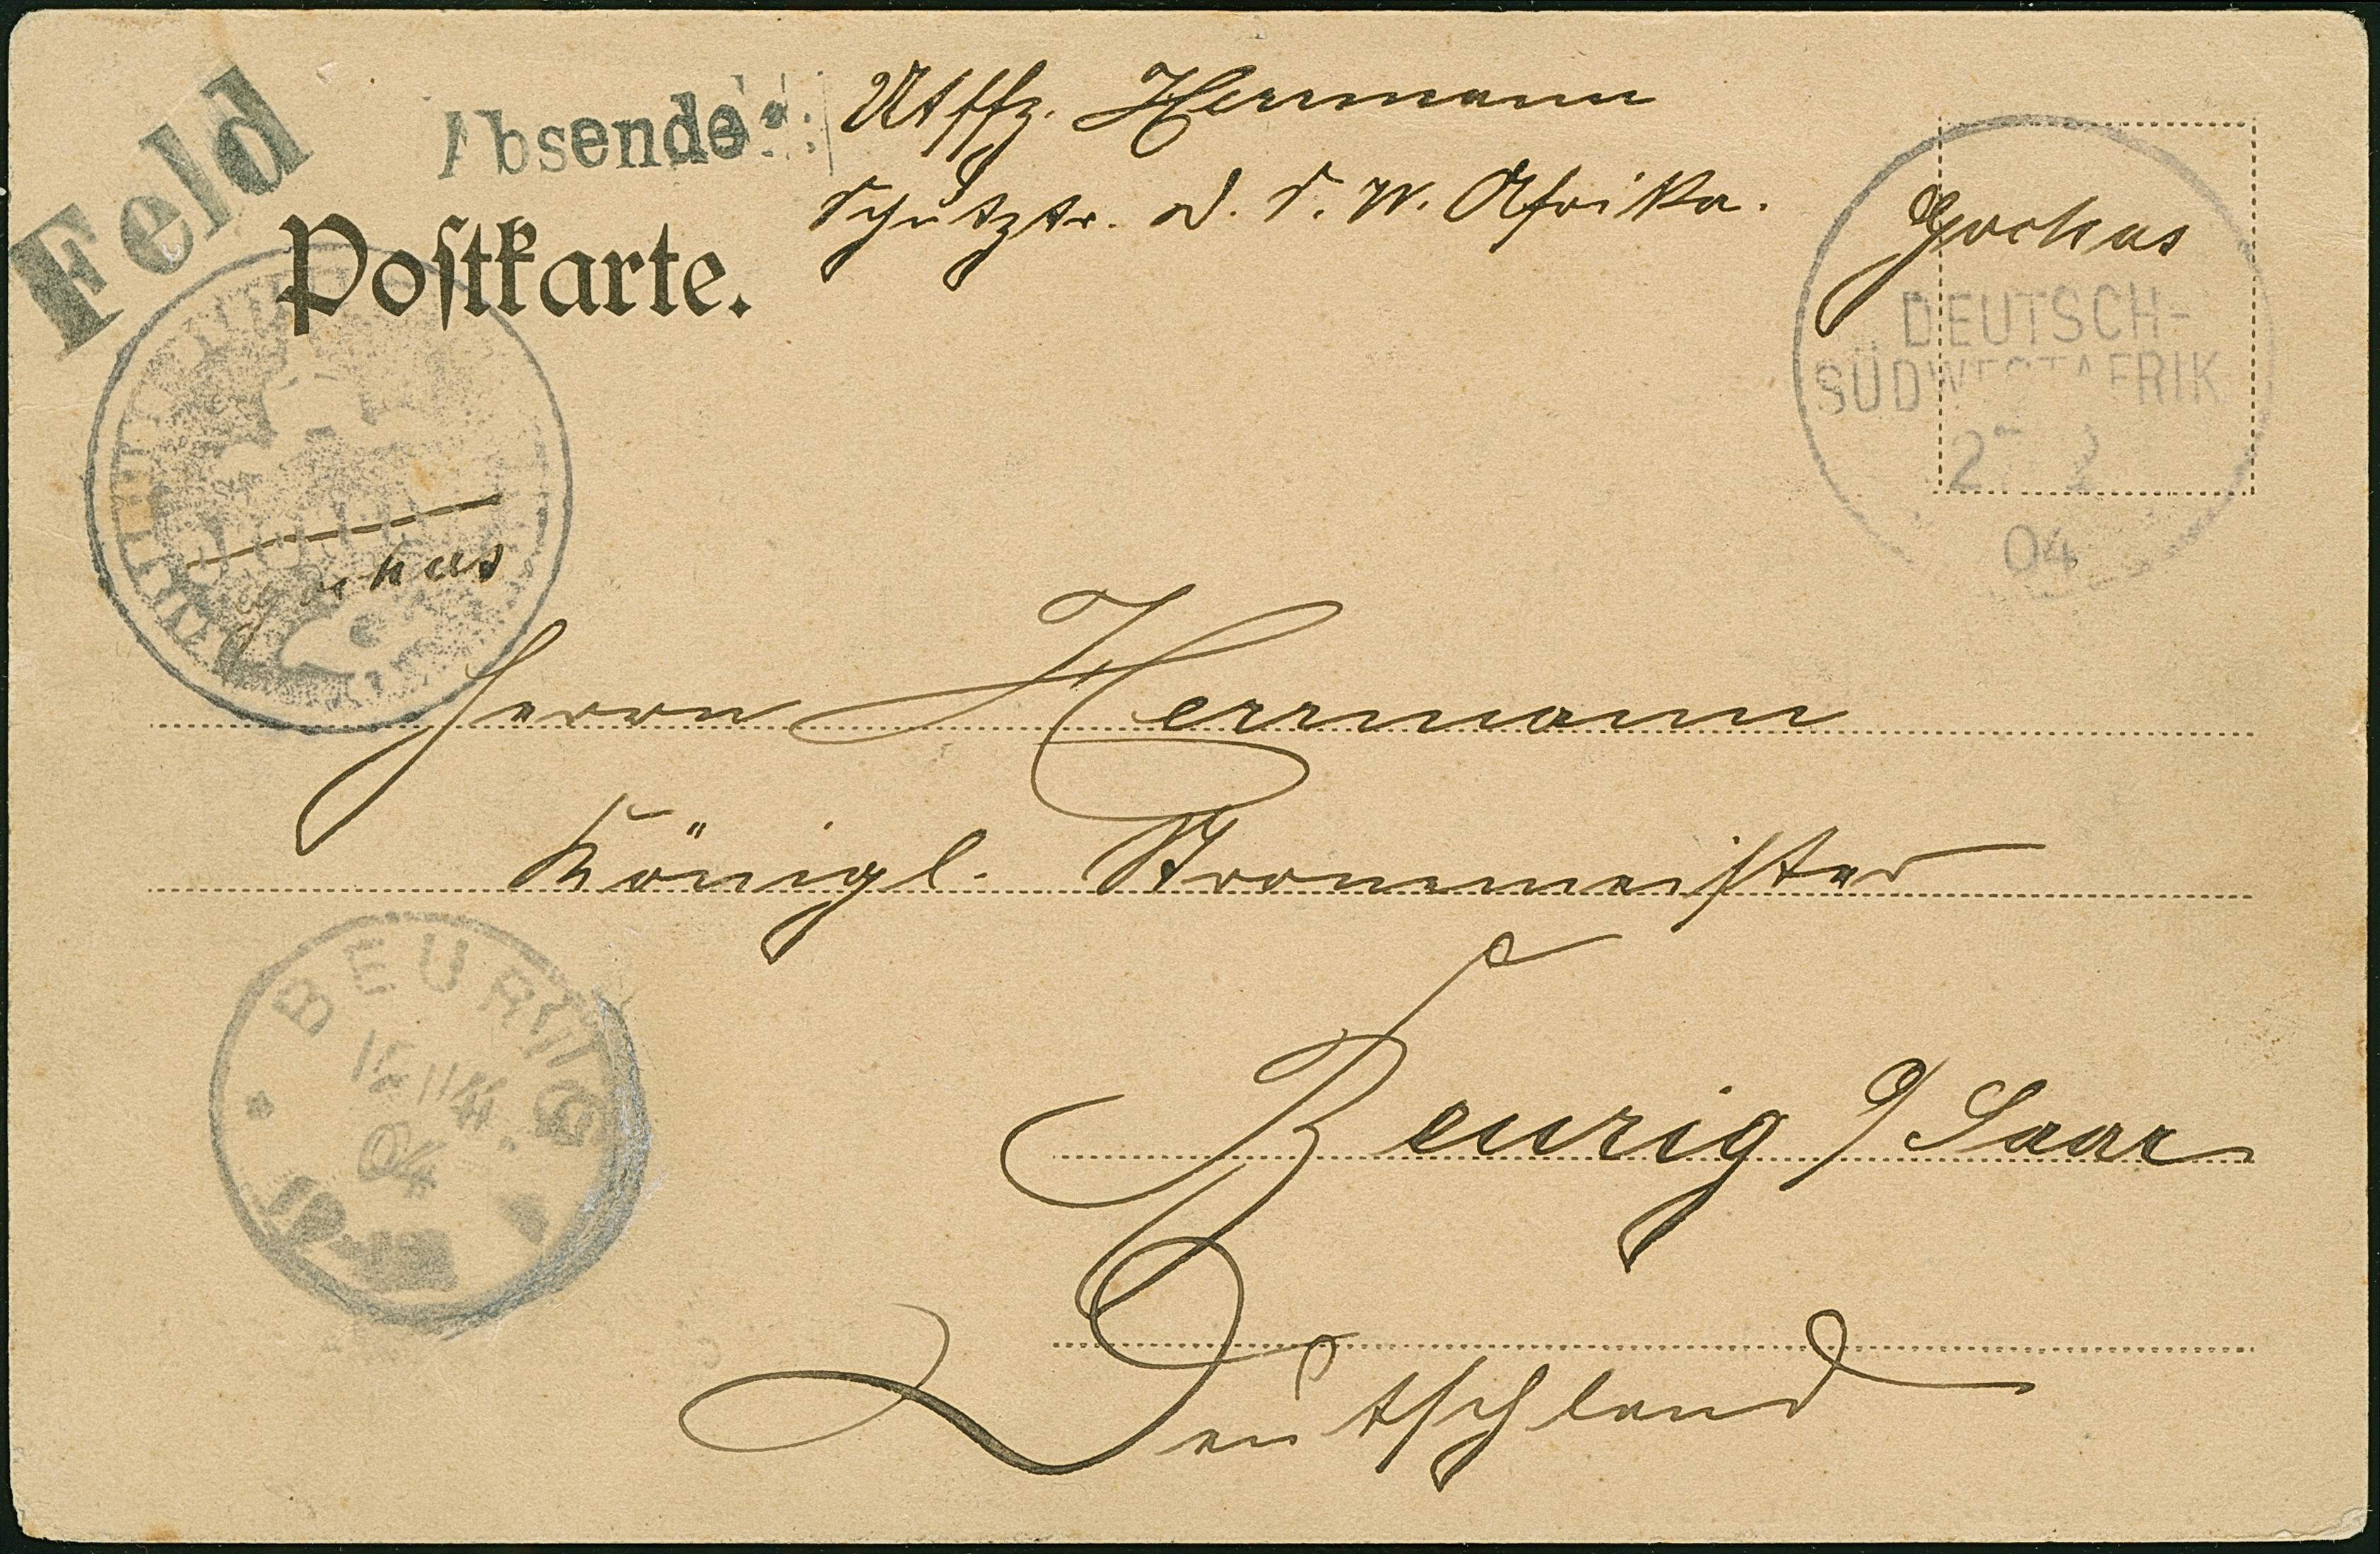 Feld
Absender:
Utffz. Herrmann
Schutztr. D. S. W. Afrika.
Postkarte.
Gochas
DEUTSCH-
SÜDWESTAFRIK
27 2
04
Gochas
Herrn Herrmann
Königl. Strommeister
BEURIG
04
Beurig a/Saar
Deutschland